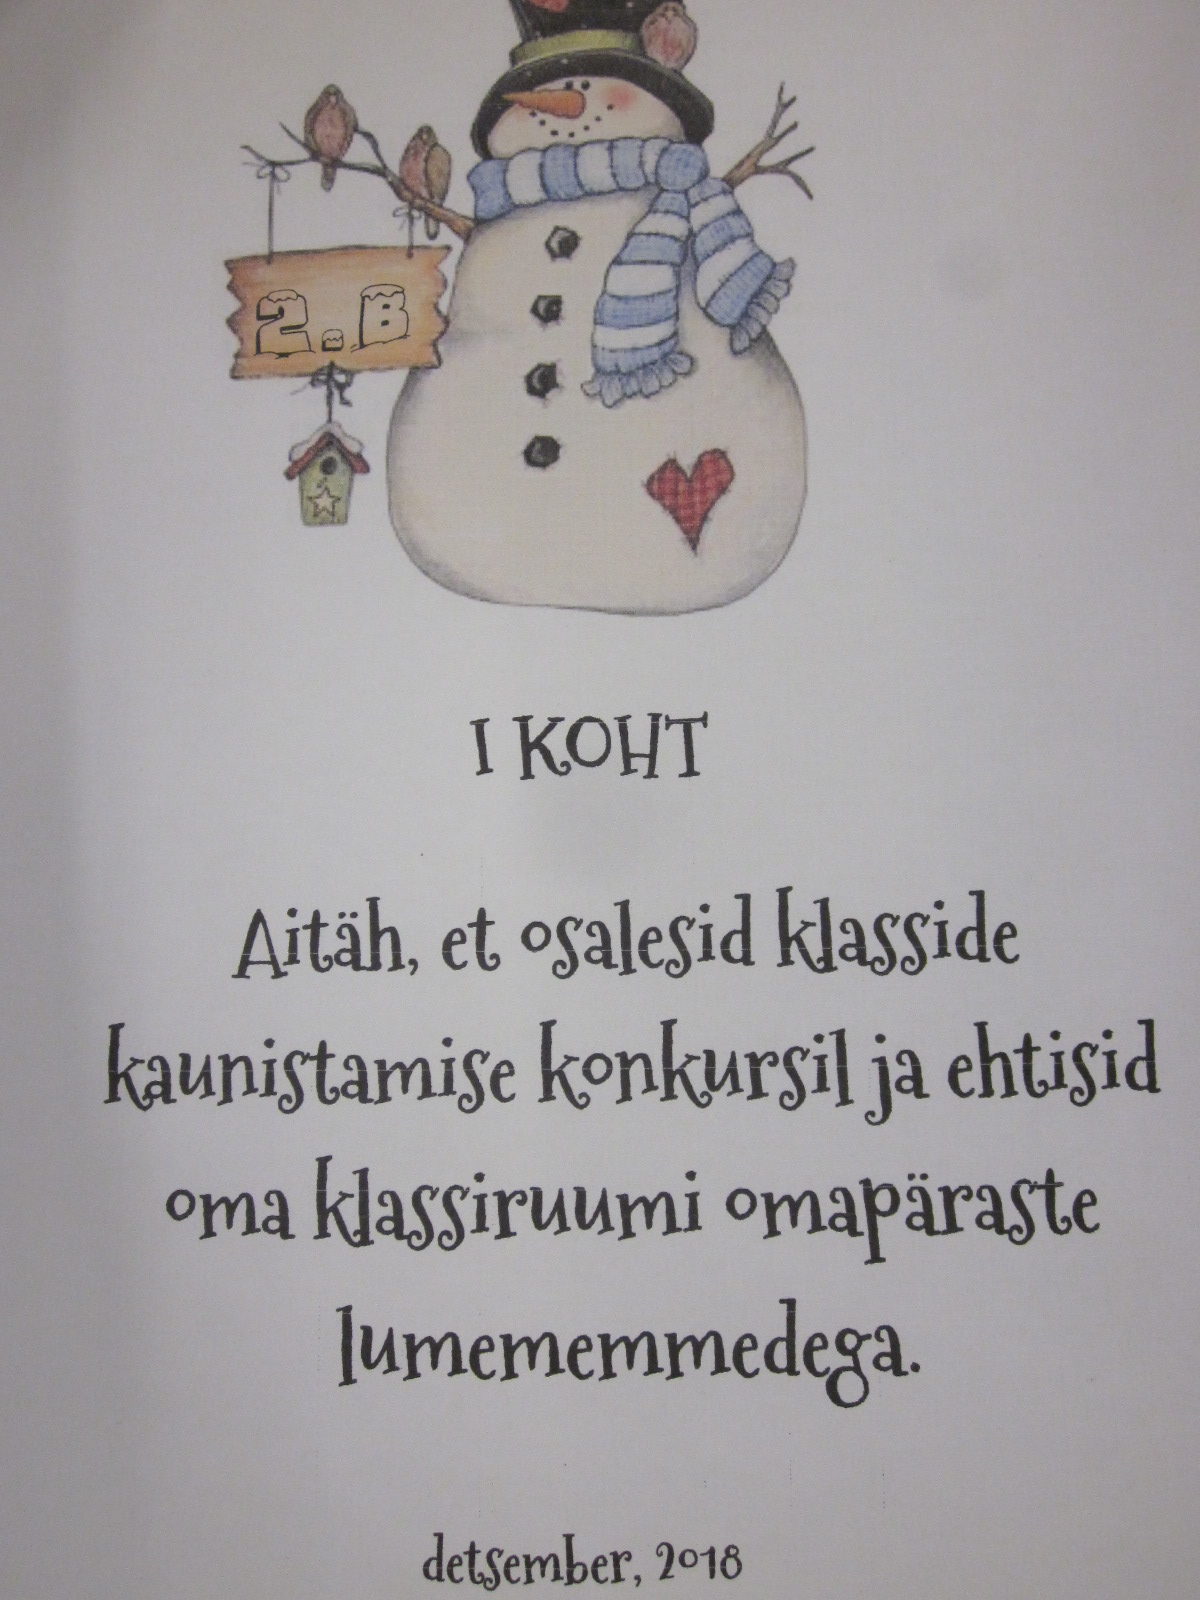 2.B
I KOHT
Aitäh, et osalesid klasside
kaunistamise konkursil ja ehtisid
oma klassiruumi omapäraste
lumememmedega.
detsember, 2018